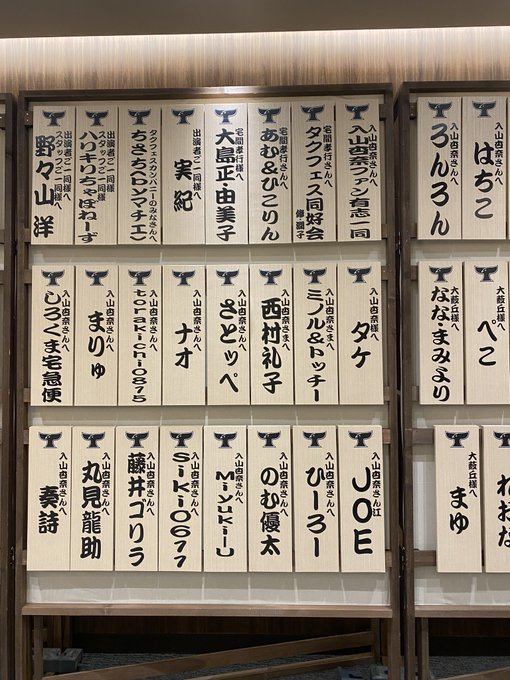 入山杏奈さんへ
はちこ
入山杏奈さんへ
ろんろん
大薮丘様へ
ぺこ
大薮丘様へ
なな・まみより
大薮丘様へ
まゆ
入山杏奈さんへ
入山杏奈ファン有志一同
宅間孝行さんへ
タクフェス同好会
宅間孝行さんへ
あむ&ひこりん
宅間孝行様へ
大島正・由美子
出演者ご一同様へ
実紀
タクフェスカンパニーのみなさんへ
出演者ご一同様へ
スタッフご一同様へ
ハリキリちゃぽねーず
出演者ご一同様へ
スタッフご一同様へ
野々山洋
入山杏奈様へ
タケ
入山杏奈さまへ
ミノル&トッチー
入山杏奈さまへ
西村礼子
入山杏奈さんへ
さとッペ
入山杏奈さんへ
ナオ
入山杏奈さんへ
torakichi0815
入山杏奈さんへ
まりゅ
入山杏奈さんへ
しろくま宅急便
入山杏奈さん江
JOE
入山杏奈さんへ
ひーろー
入山杏奈さんへ
のむ優太
入山杏奈さんへ
MiyukiU
入山杏奈さんへ
Siki0677
入山杏奈さんへ
藤井ゴリラ
入山杏奈さんへ
丸見龍助
入山杏奈さんへ
奏詩